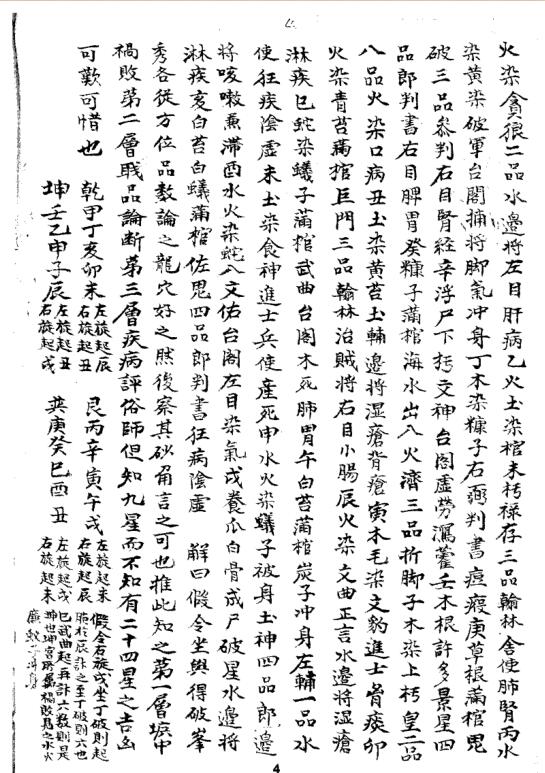 火染貪狼二品水邊將左目肝病乙火土染棺未朽祿存三品翰林舍使肺腎丙水
染黃染破軍台閣捕將脚氣冲身丁木染糠子右弼判書痘瘦庚草根滿棺鬼
破三品參判右目腎経辛浮尸下朽文神台閣虛勞瀉藿壬木根許多景星四
品郎判書右目脾胃癸糠子滿棺海水出入火濟三品折脚子木染上朽皇二品
八品火染口病丑土染黃苔土輔邊將湿瘡背瘡寅木毛染文豹進士胷痰卯
火染青苔滿棺巨門三品翰林治賊將右目小腸辰火染文曲正言水邊將湿瘡
淋疾巳蛇染蟻子滿棺武曲台閣木死肺胃午白苔滿棺炭子冲身左輔一品水
使狂疾陰虛未土染食神進士兵使産死申水火染蟻子被身土神四品郎邊
將咳嗽熏滯酉水火染蛇入文佑台閣左目染氣戌養瓜白骨成尸破星水邊將
淋疾亥白苔白蟻滿棺佐鬼四品郎判書狂病陰虛 解曰假令坐巽得破峯
秀各從方位品數論之龍穴好之然後察其砂角言之可也推此知之第一層塚中
禍敗第二層職品論断第三層疾病評俗師但知九星而不知有二十四星之吉凶
可歎可惜也 乾甲丁亥卯未 左旋起辰 右旋起丑 艮丙辛寅午戌 左旋起未 右旋起辰
坤壬乙申子辰 左旋起丑 右旋起戌 巽庚癸巳酉丑 左旋起戌 右旋起未
假令右旋戌坐丁破則起
辰計之至丁破則六也
巳武曲起再計六數則是
4